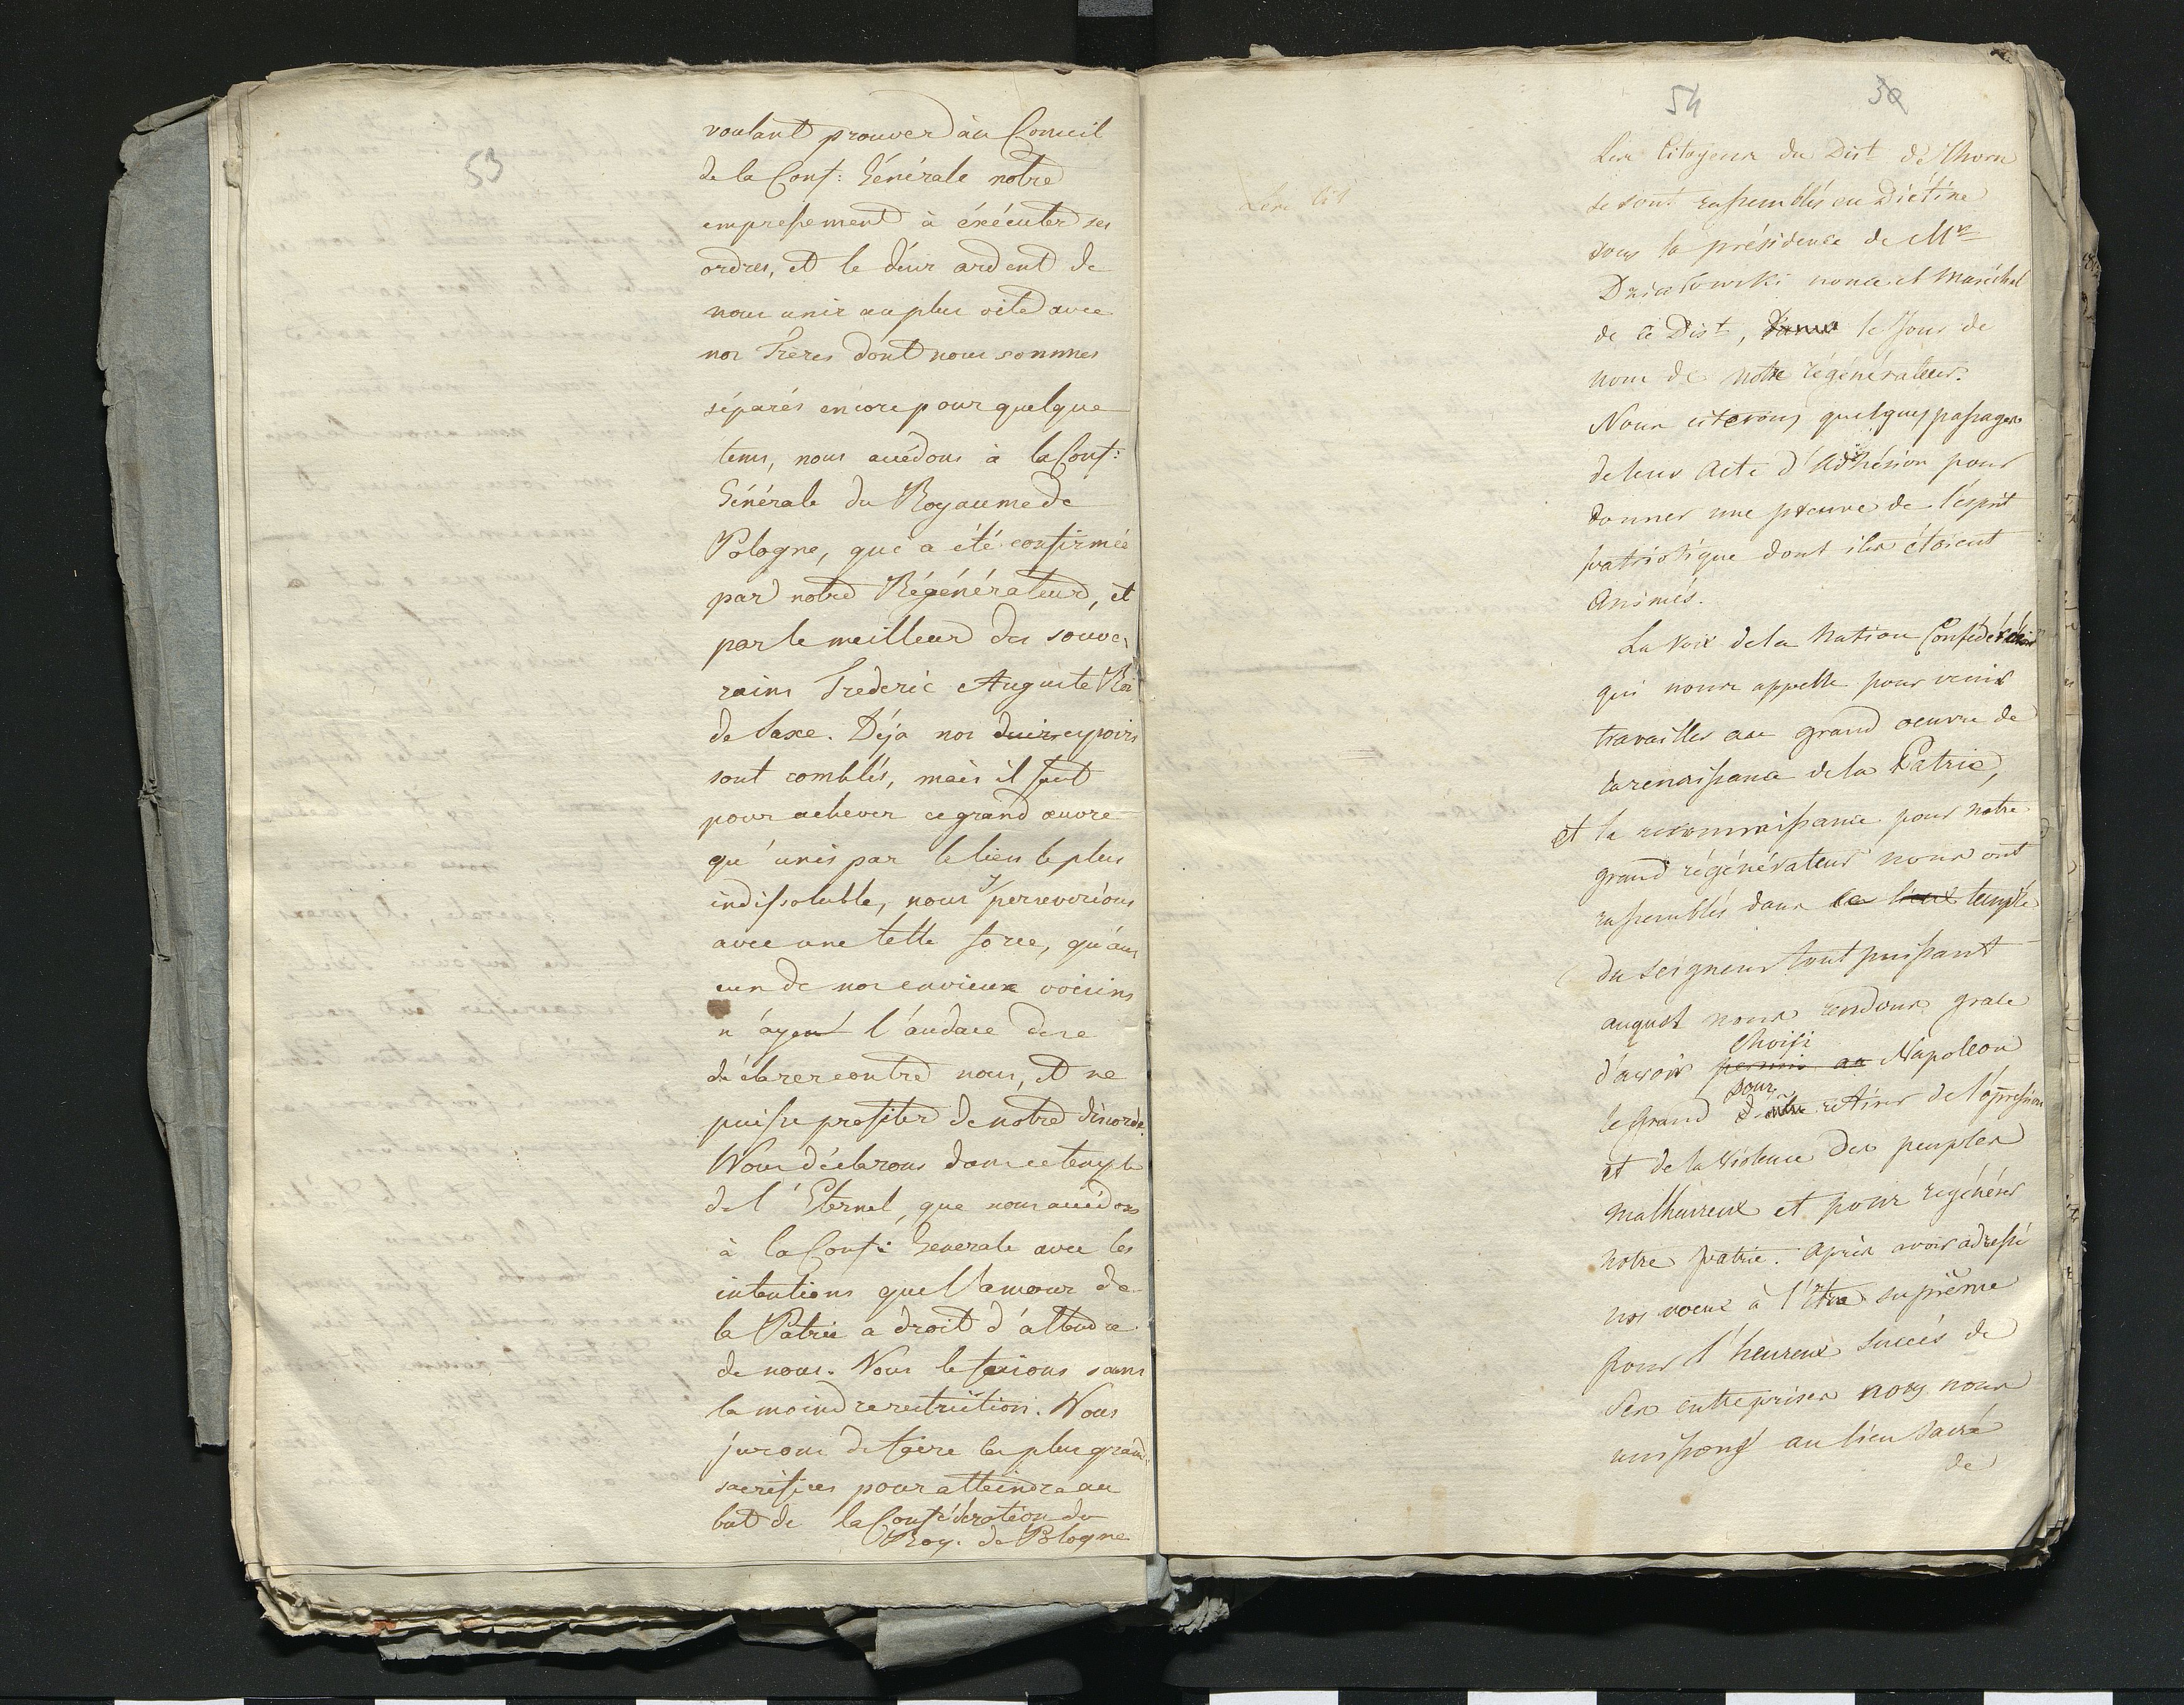 53
voulant prouver au Conseil
de la Conf: Générale notre
empressement à éxécuter ses
ordres, et le désir ardent de
nous unir au plus vite avec
nos Frères dont nous sommes
séparés encore pour quelque
tems, nous accédons à la Conf:
Générale du Royaume de
Pologne, que a été confirmée
par notre Régénérateur, et
par le meilleur des souve-
rains Frederic Auguste Roi
de Saxe. Déja nos desirs espoirs
sont comblés, mais il faut
pour achever ce grand œuvre
qu'unis par le lien le plus
indissoluble, nous y perseverions
avec une telle force, qu'au
cun de nos envieux voisins
n'ayent l'audace de se
déclarer contre nous, et ne
puisse profiter de notre discorde.
Nous déclarons dans ce temple
de l'Eternel, que nous accédons
à la Conf: Generale avec les
intentions que l'amour de
la Patrie a droit d'attendre
de nous. Nous le ferions sans
la moindre restriction. Nous
jurons de faire les plus grands
sacrifices pour atteindre au
but de la Confédération du
Roy. de Pologne
54 30
Les Cit
Les Citoyens du Dist de Thorn
se sont rassemblés en Diétine
sous la présidence de Mr
Dzialowski nonce et Maréchal
de ce Dist, le Jour de
nom de notre régénérateur.
Nous citerons quelques passages
de leur Acte d'Adhésion pour
donner une preuve de l'esprit
patriotique dont ils étoient
animés.
La voix de la Nation Confédérée
qui nous appelle pour venir
travailler au grand oeuvre de
la renaissance de la Patrie,
et la reconnaissance pour notre
grand régénérateur nous ont
rassemblés dans le lieux temple
du Seigneur tout puissant
auquel nous rendons grace
choisi
d'avoir permis au Napoleon
pour
le Grand retirer de l'opression
et de la violence des peuples
malheureux et pour regénérer
notre patrie. Après avoir adressé
nos voeux à l'être suprême
pour l'heureux succès de
Ses entreprises nous nous
unissons au lien sacré
de